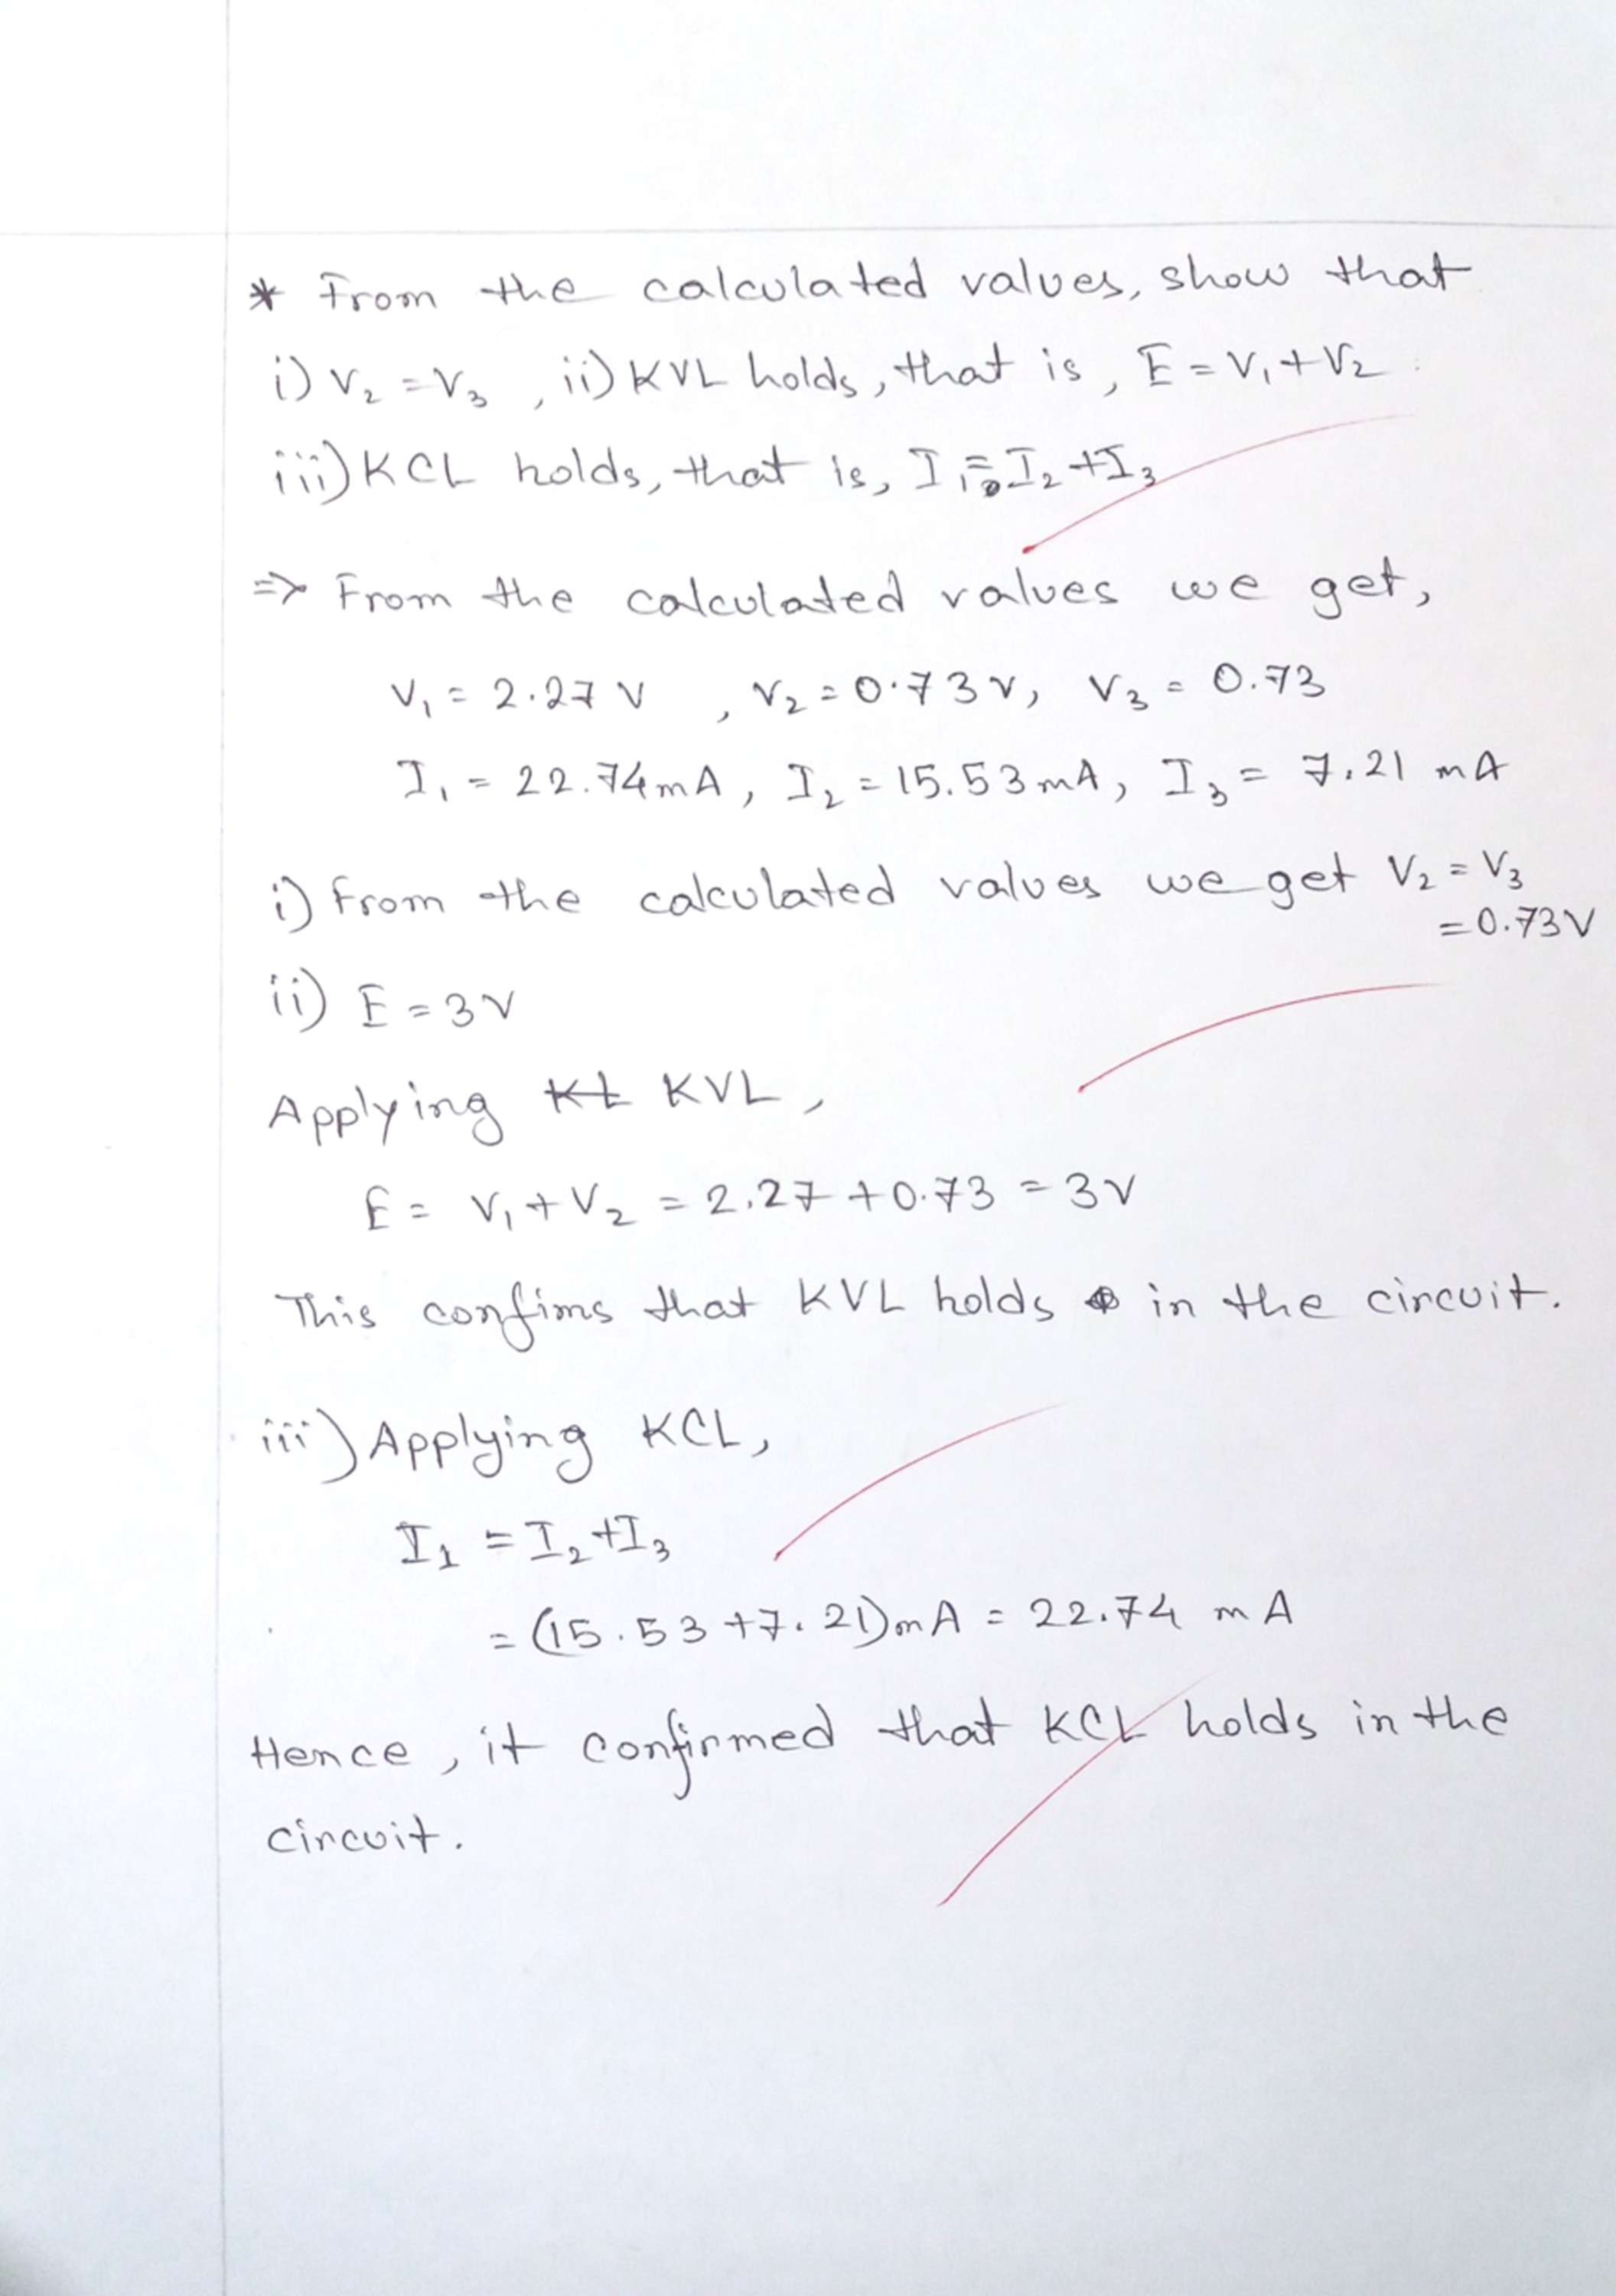 * From the calculated values, show that
i) V₂ = V₃ , ii) KVL holds, that is, E = V₁ + V₂
iii) KCL holds, that is, I₁ = I₂ + I₃
=> From the calculated values we get,
V₁ = 2.27 V , V₂ = 0.73 V, V₃ = 0.73
I₁ = 22.74 mA, I₂ = 15.53 mA, I₃ = 7.21 mA
i) From the calculated values we get V₂ = V₃
= 0.73V
ii) E = 3V
Applying KL KVL,
E = V₁ + V₂ = 2.27 + 0.73 = 3V
This confims that KVL holds in the circuit.
iii) Applying KCL,
I₁ = I₂ + I₃
= (15.53 + 7.21) mA = 22.74 mA
Hence, it confirmed that KCL holds in the
circuit.